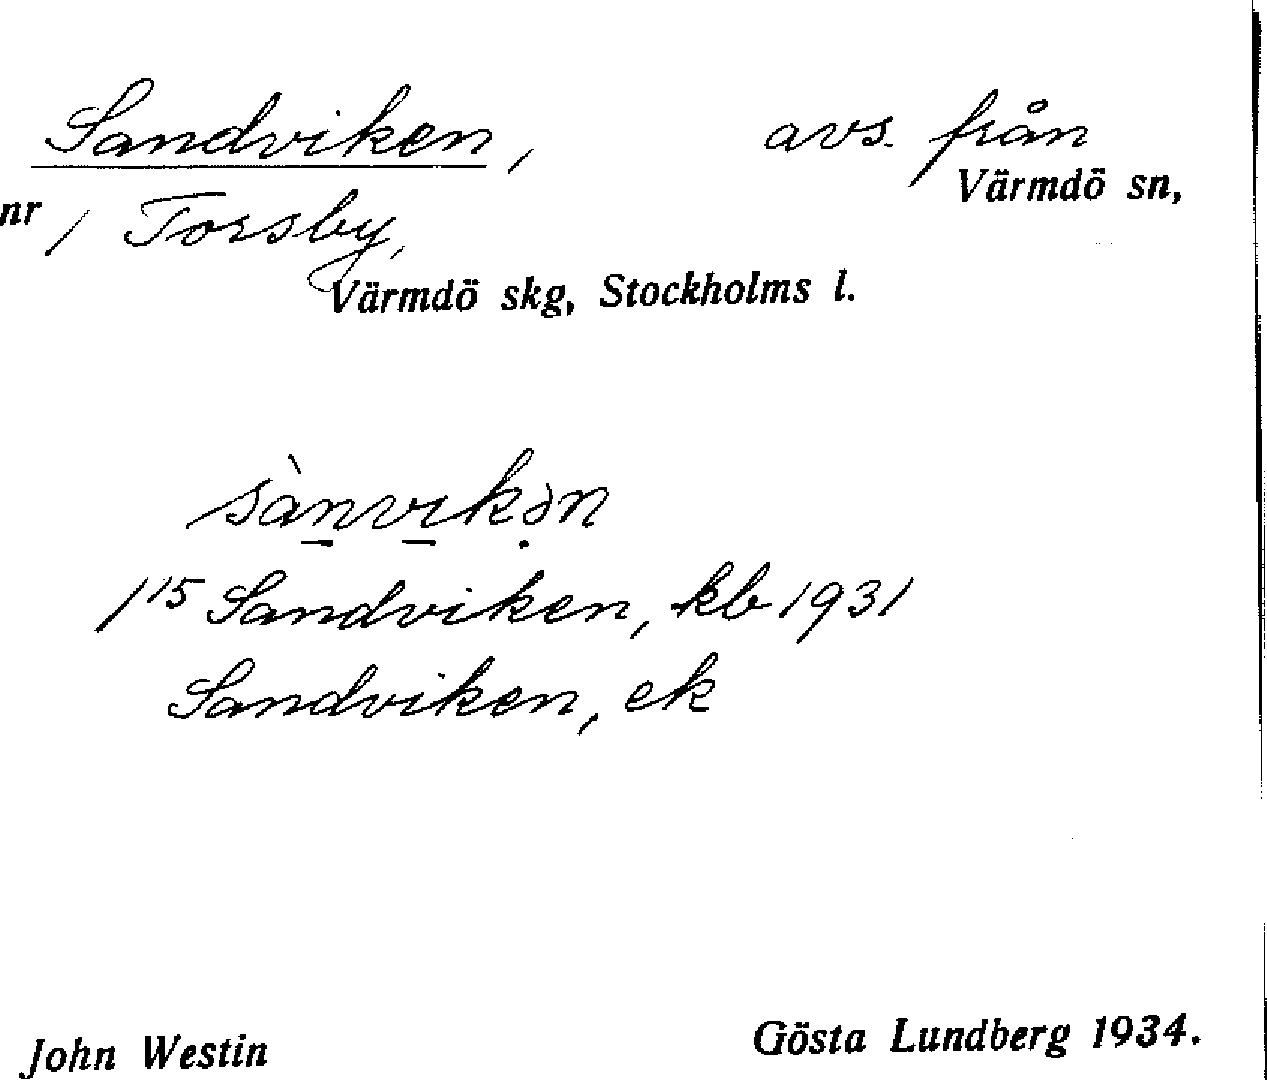 Sandviken, avs. från
Värmdö sn,
nr 1 Torsby,
Värmdö skg, Stockholms l.
sànvıkən
1¹⁵ Sandviken, kb 1931
Sandviken, ek
John Westin Gösta Lundberg 1934.